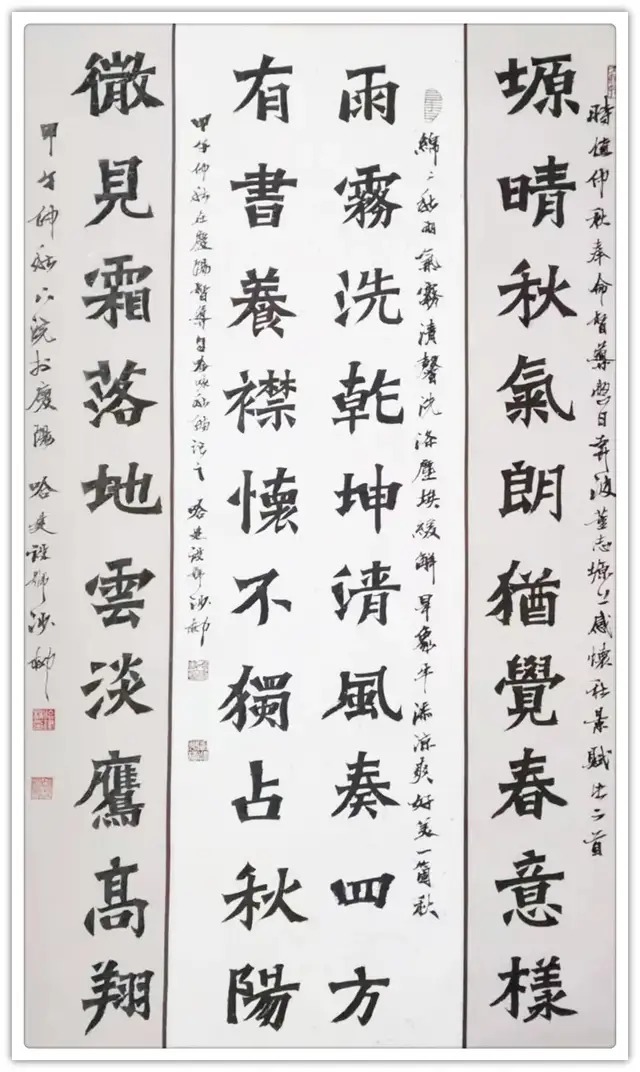 時值仲秋奉命督導整日奔波董志塬上感懷秋景賦出二首
塬晴秋氣朗猶覺春意樣
綿〻秋雨氣霧清馨洗滌塵埃緩解旱象平添涼爽好美一箇秋
雨霧洗乾坤清風奏四方
有書養襟懷不獨占秋陽
甲午仲秋在慶陽督導自詠秋詩記之 哈建設號沙柳
微見霜落地雲淡鷹髙翔
甲午仲秋上浣於慶陽 哈建設號沙柳